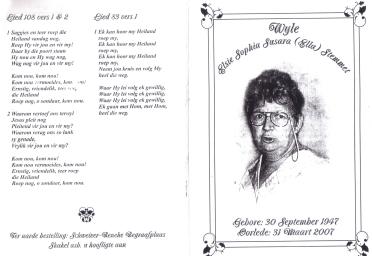 Lied 108 vers 1 & 2
1 Saggies en teer roep die
Heiland vandag nog,
Roep Hy vir jou en vir my!
Daar by die poort staan
Hy nou en Hy wag nog,
Wag nog vir jou en vir my!
Kom nou, kom nou!
Kom nou vermoeides, kom nou!
Ernstig, vriendelik, teer roep
die Heiland
Roep nog, o sondaar, kom nou.
2 Waarom vertoef ons terwyl
Jesus pleit nog
Pleitend vir jou en vir my?
Waarom versag ons so lank
sy genade,
Vrylik vir jou en vir my?
Kom nou, kom nou!
Kom nou vermoeides, kom nou!
Ernstig, vriendelik, teer roep
die Heiland
Roep nog, o sondaar, kom nou.
Ter aarde bestelling: Schweizer-Reneke Begraafplaas
Skakel asb. u hoofligte aan
Lied 83 vers 1
1 Ek kan hoor my Heiland
roep my,
Ek kan hoor my Heiland
roep my,
Ek kan hoor my Heiland
roep my,
Neem jou kruis en volg My
heel die weg.
Waar Hy lei volg ek gewillig,
Waar Hy lei volg ek gewillig,
Waar Hy lei volg ek gewillig,
Ek gaan met Hom, met Hom,
heel die weg.
Wyle
Elsie Sophia Susara (Ella) Stemmet
Gebore: 30 September 1947
Oorlede: 31 Maart 2007